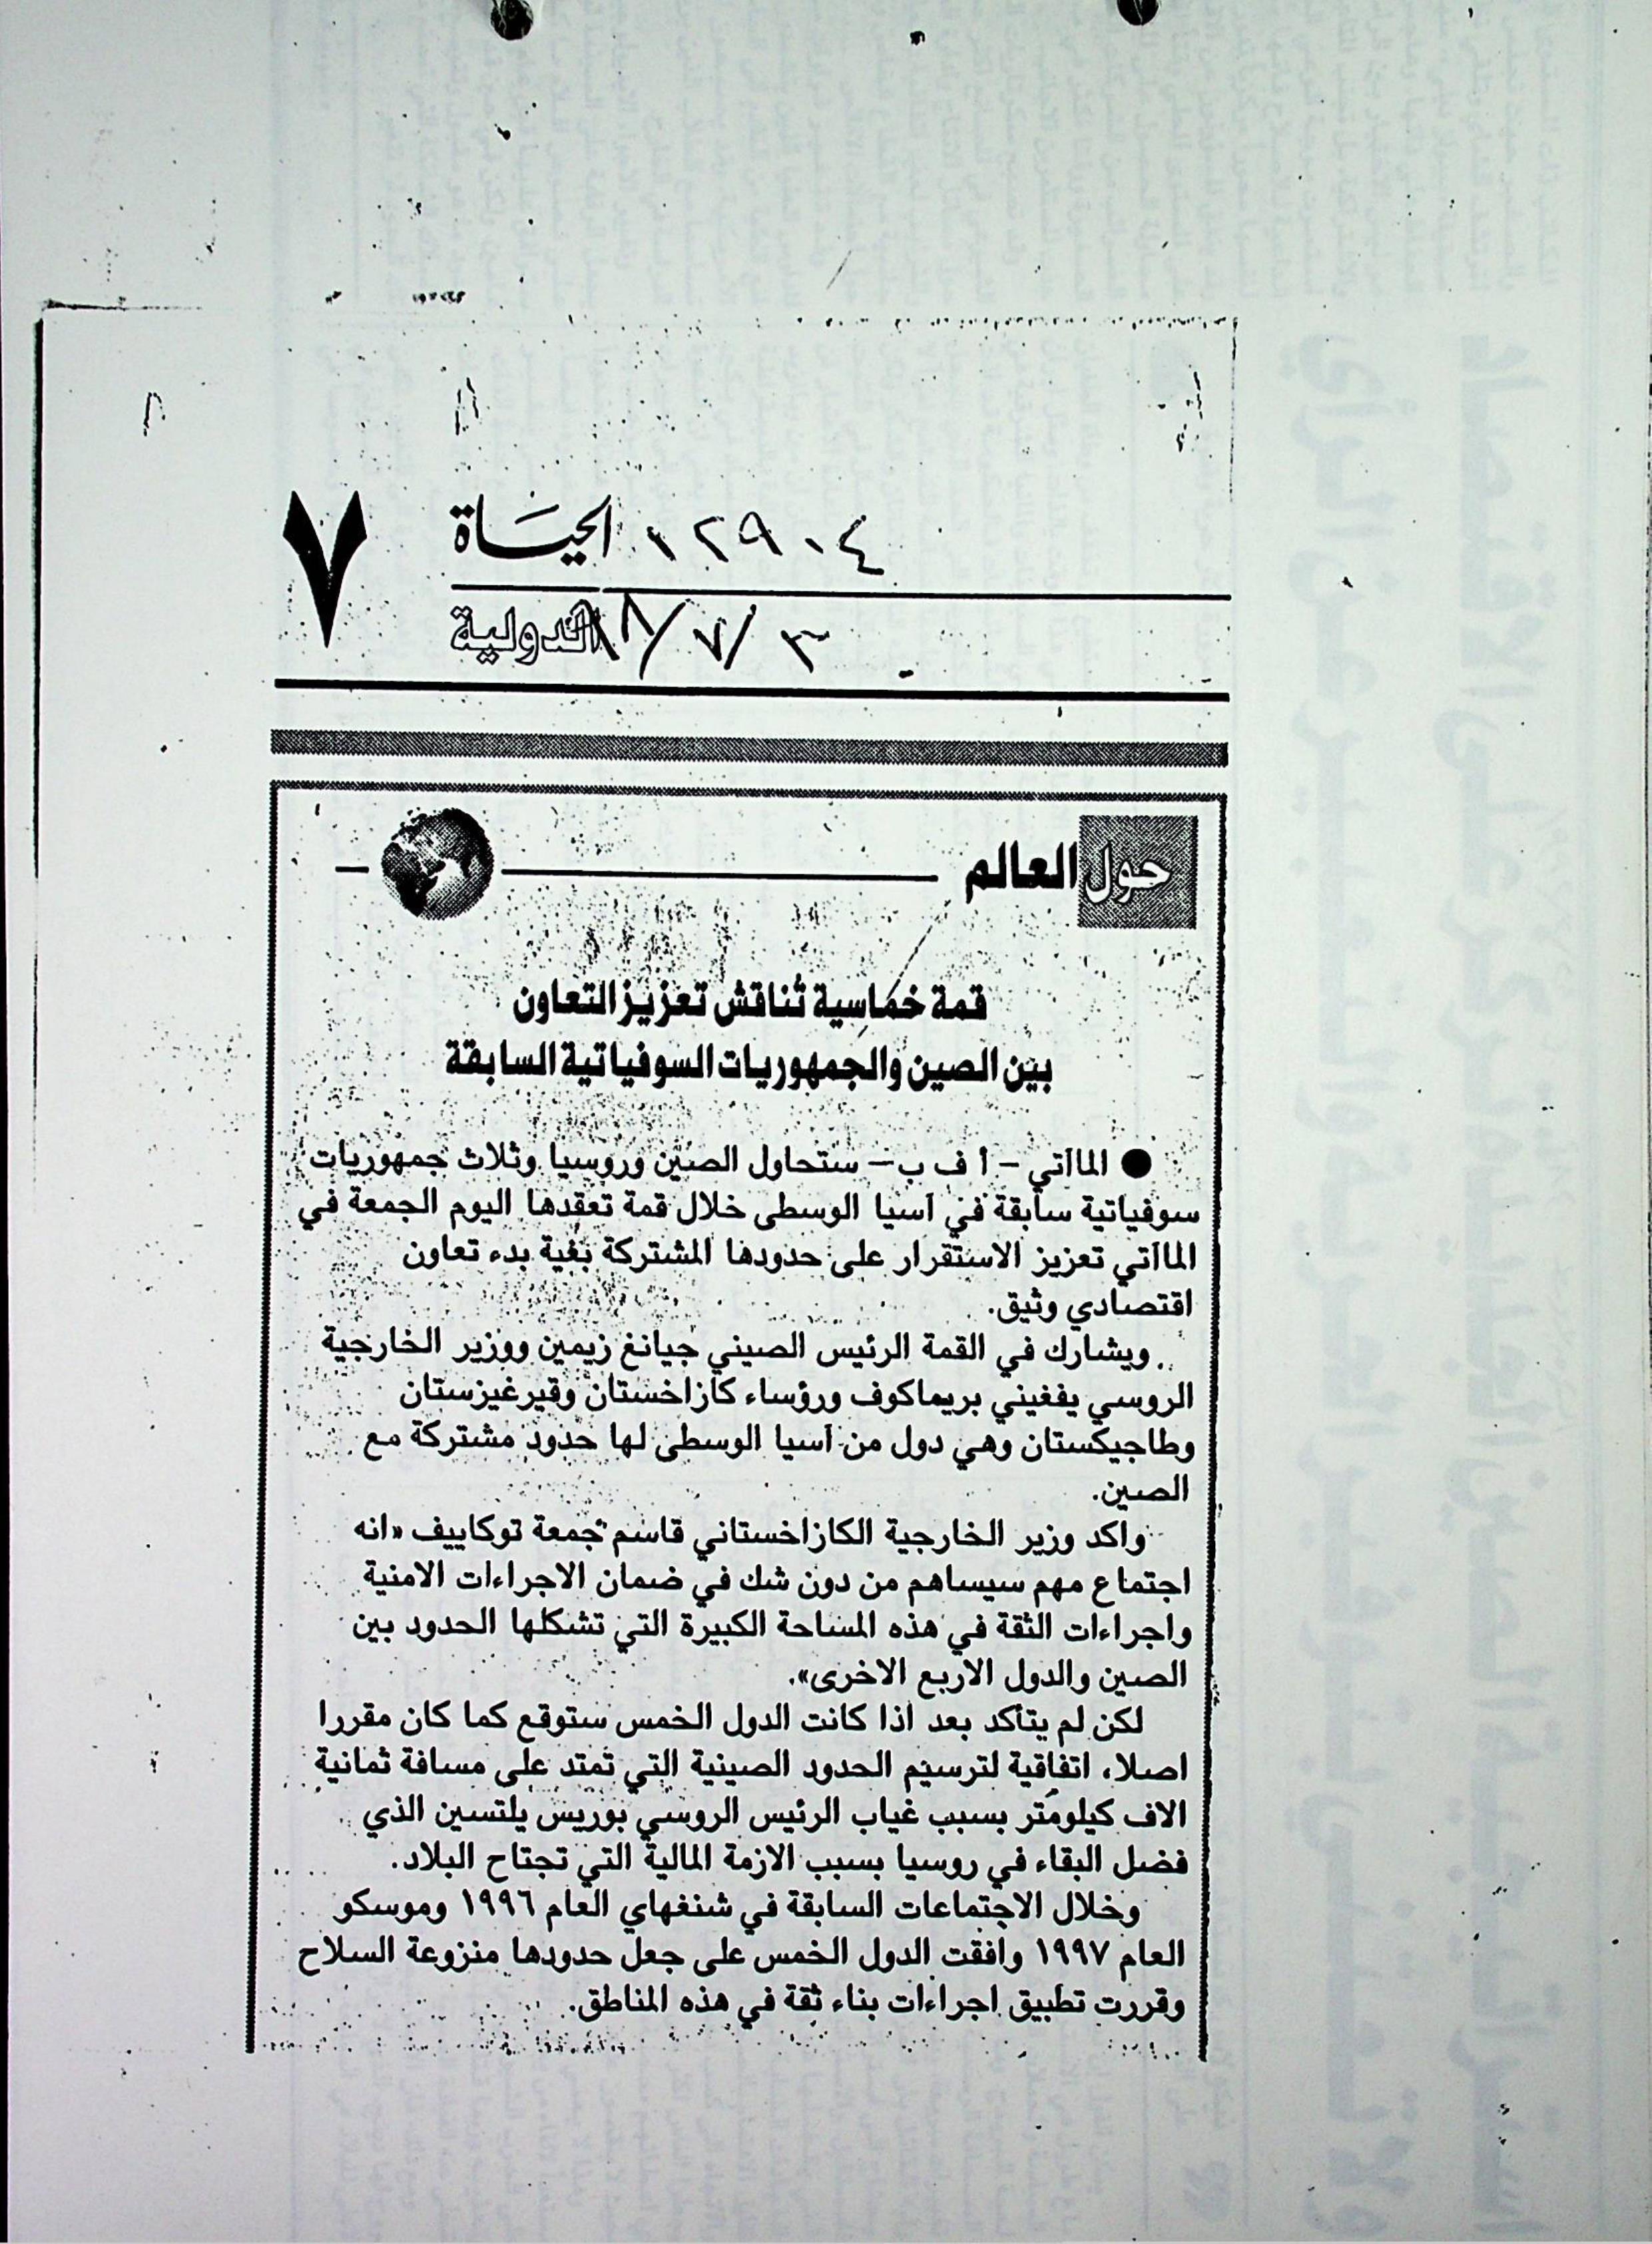 ٧
الحياة ١٢٩٠٤
الدولية ٩٨/٧/٣
حول العالم
قمة خماسية تناقش تعزيز التعاون
بين الصين والجمهوريات السوفياتية السابقة
● الماآتي – أ ف ب – ستحاول الصين وروسيا وثلاث جمهوريات
سوفياتية سابقة في آسيا الوسطى خلال قمة تعقدها اليوم الجمعة في
الماآتي تعزيز الاستقرار على حدودها المشتركة بغية بدء تعاون
اقتصادي وثيق.
ويشارك في القمة الرئيس الصيني جيانغ زيمين ووزير الخارجية
الروسي يفغيني بريماكوف ورؤساء كازاخستان وقيرغيزستان
وطاجيكستان وهي دول من آسيا الوسطى لها حدود مشتركة مع
الصين.
واكد وزير الخارجية الكازاخستاني قاسم جمعة توكاييف «انه
اجتماع مهم سيساهم من دون شك في ضمان الاجراءات الامنية
واجراءات الثقة في هذه المساحة الكبيرة التي تشكلها الحدود بين
الصين والدول الاربع الاخرى».
لكن لم يتأكد بعد اذا كانت الدول الخمس ستوقع كما كان مقررا
اصلا، اتفاقية لترسيم الحدود الصينية التي تمتد على مسافة ثمانية
الاف كيلومتر بسبب غياب الرئيس الروسي بوريس يلتسين الذي
فضل البقاء في روسيا بسبب الازمة المالية التي تجتاح البلاد.
وخلال الاجتماعات السابقة في شنغهاي العام ١٩٩٦ وموسكو
العام ١٩٩٧ وافقت الدول الخمس على جعل حدودها منزوعة السلاح
وقررت تطبيق اجراءات بناء ثقة في هذه المناطق.